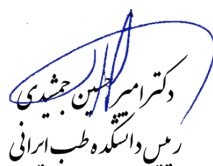 دکتر امیرحسین جمشیدی
رییس دانشکده طب ایرانی